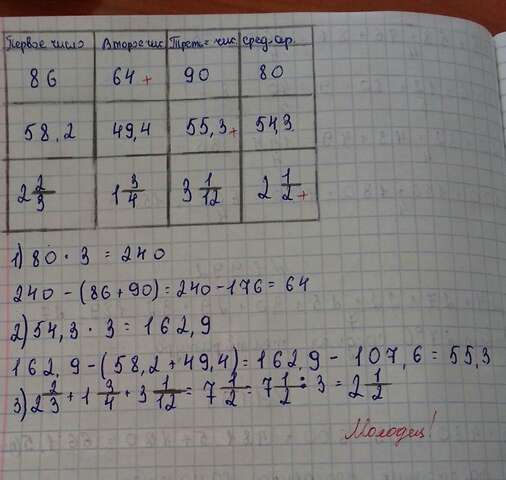 Первое число Второе чис Третье чис сред. ар.
86 64+ 90 80
58,2 49,4 55,3+ 54,3
2 2/3 1 3/4 3 1/12 2 1/2+
1) 80 · 3 = 240
240 - (86 + 90) = 240 - 176 = 64
2) 54,3 · 3 = 162,9
162,9 - (58,2 + 49,4) = 162,9 - 107,6 = 55,3
3) 2 2/3 + 1 3/4 + 3 1/12 = 7 1/2 = 7 1/2 : 3 = 2 1/2
Молодец!